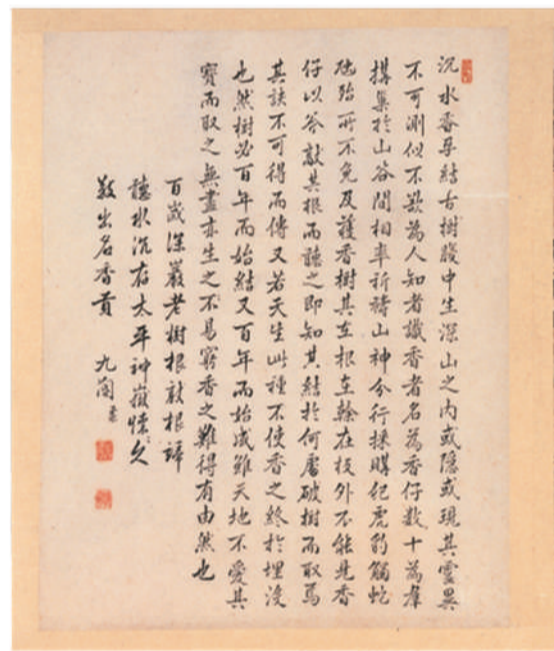 沉水香孕結古樹腹中生深山之内或隱或現其靈異
不可測似不欲為人知者識香者名為香仔數十為羣
搆巢於山谷間相率祈禱山神分行採購犯虎豹觸蛇
虺殆所不免及獲香樹其在根在榦在枝外不能見香
仔以斧敲其根而聽之即知其結於何處破樹而取焉
其訣不可得而傳又若天生此種不使香之終於埋沒
也然樹必百年而始結又百年而始成雖天地不愛其
寶而取之無盡亦生之不易窮香之難得有由然也
百歲深巖老樹根敲根諦
聽水沉存太平神嶽久
出名香貢 九閽